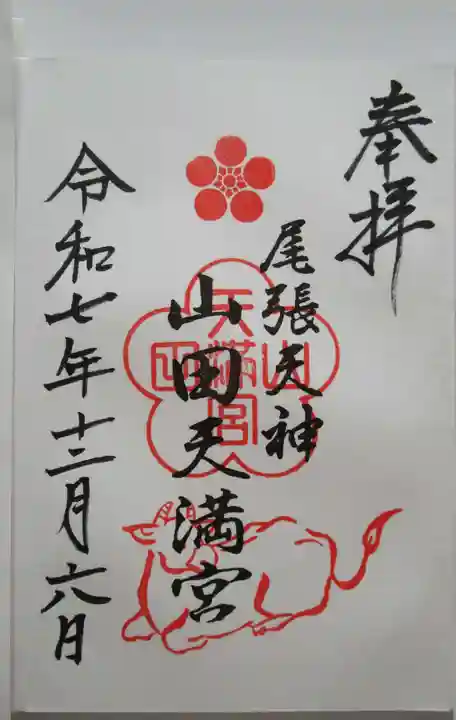 奉拝
尾張天神
山田天満宮
山田天満宮
令和七年十二月六日